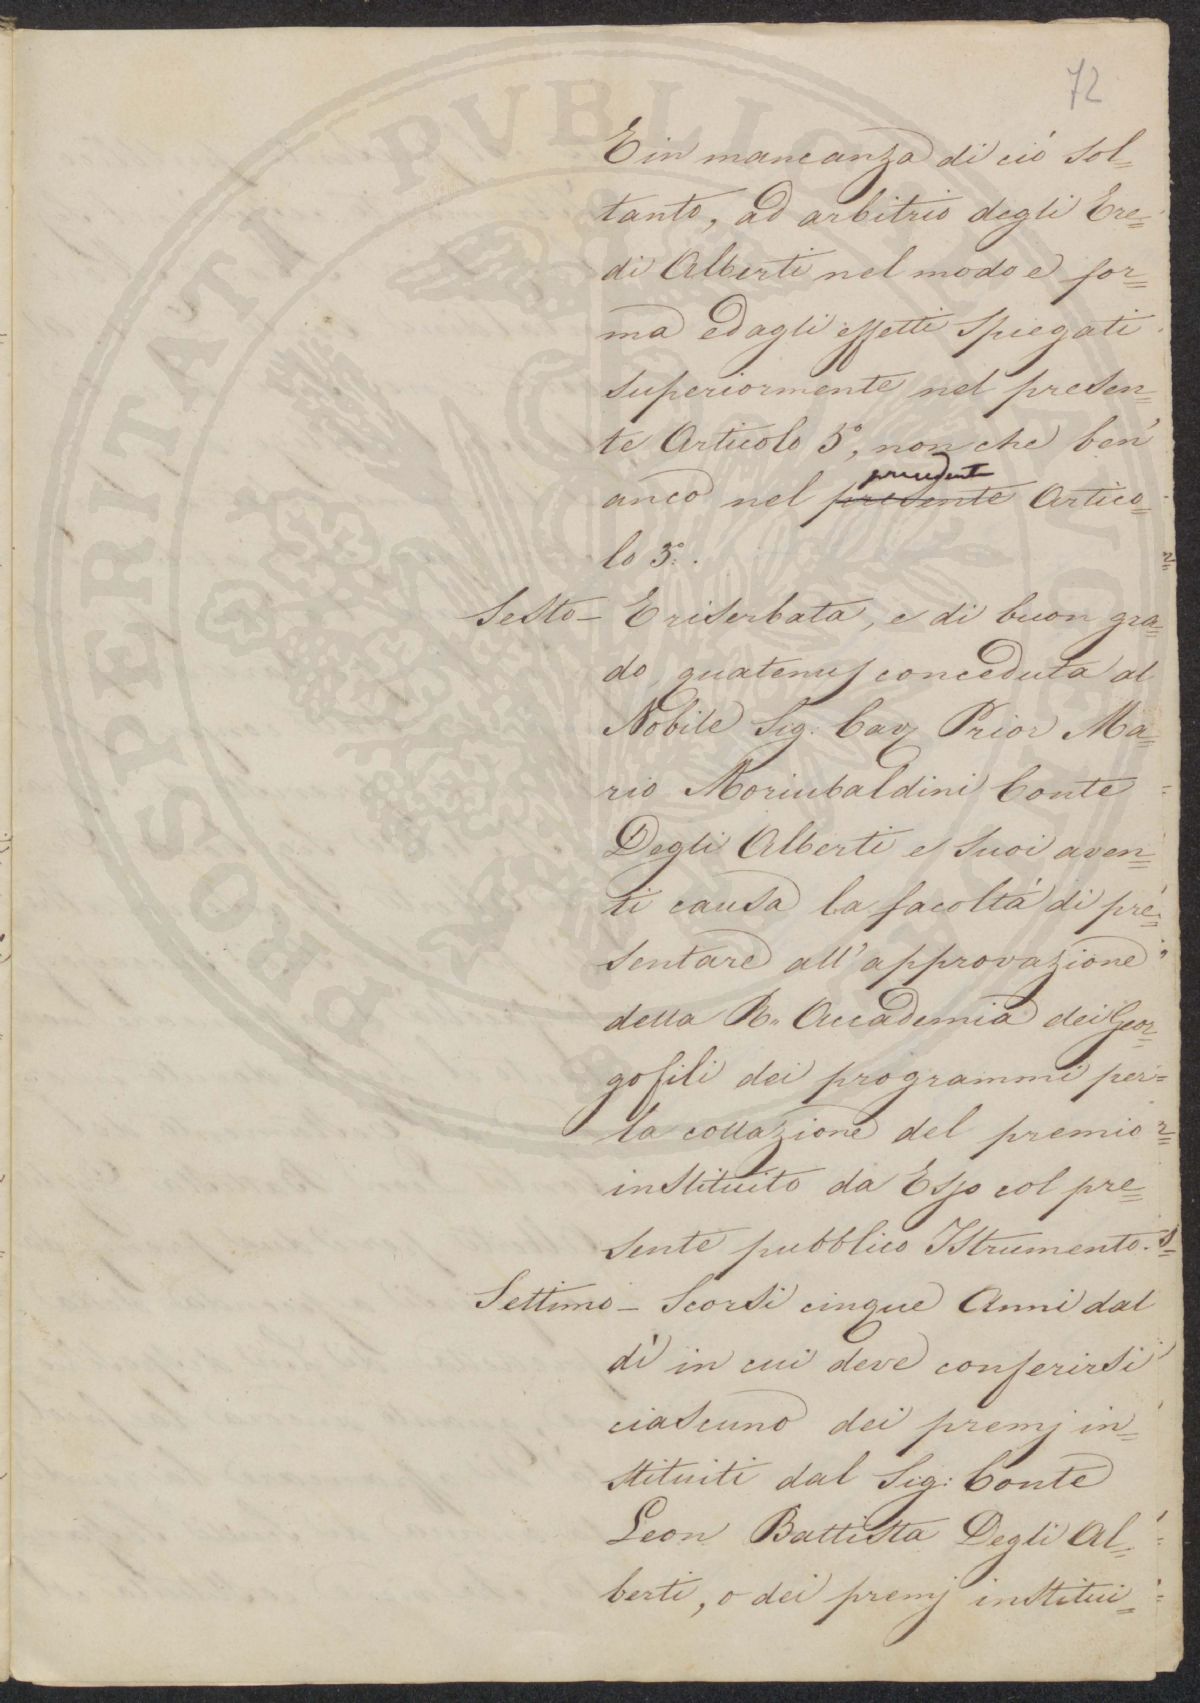 72
E in mancanza di ció sol=
tanto, ad arbitrio degli Ere=
di Alberti nel modo e for=
ma ed agli effetti spiegati
superiormente nel presen=
te Articolo 5°, non che ben'
anco nel ~~presente~~ precedente Artico=
lo 3°.
Sesto_ E riserbata, e di buon gra=
do, quatenus conceduta al
Nobile Sig: Cav. Prior Ma=
rio Moriubaldini Conte
Degli Alberti e suoi aven=
ti causa la facoltá di pre=
sentare all'approvazione
della R. Accademia dei Geor=
gofili dei programmi per=
la collazione del premio
instituito da Esso col pre=
sente pubblico Istrumento.
Settimo_ Scorsi cinque Anni dal
dì in cui deve conferirsi
ciascuno dei premj in=
stituiti dal Sig: Conte
Leon Battista Degli Al=
berti, o dei premj institui=
PROSPERITATI PVBLICAE